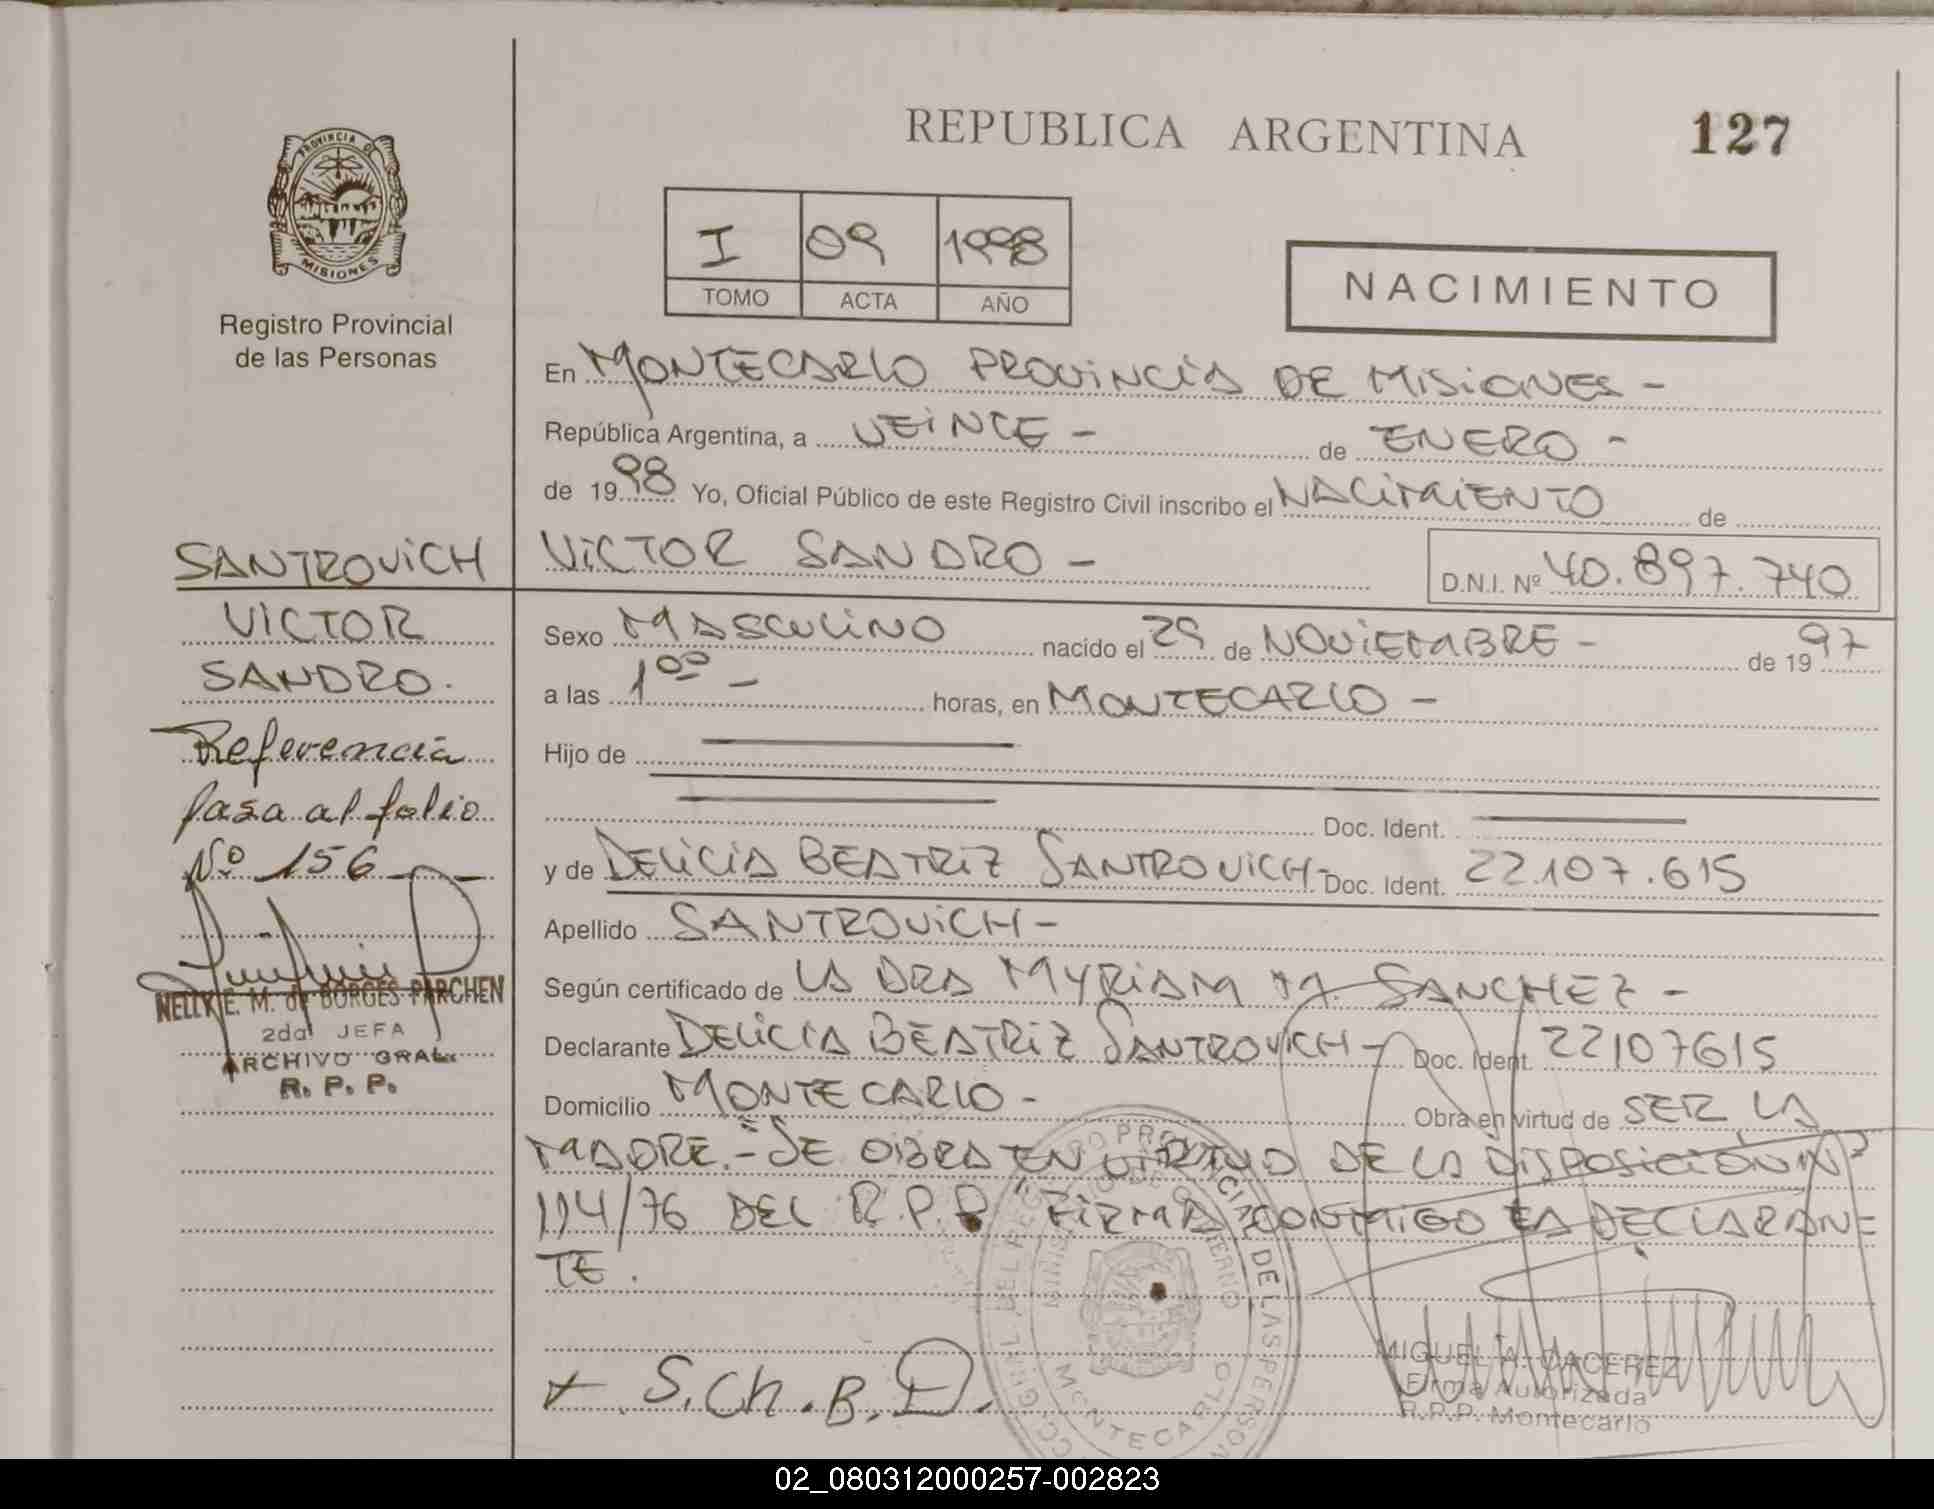 REPUBLICA ARGENTINA
127
PROVINCIA DE
MISIONES
Registro Provincial
de las Personas
I 09 1998
TOMO ACTA AÑO
NACIMIENTO
En MONTECARLO PROVINCIA DE MISIONES -
República Argentina, a VEINTE - de ENERO -
de 1998 Yo, Oficial Público de este Registro Civil inscribo el NACIMIENTO de
VICTOR SANDRO - D.N.I. Nº 40.897.740
Sexo MASCULINO nacido el 29 de NOVIEMBRE - de 1997
a las 1 00 - horas, en MONTECARLO -
Hijo de
Doc. Ident.
y de DELICIA BEATRIZ SANTROVICH- Doc. Ident. 22.107.615
Apellido SANTROVICH -
Según certificado de LA DRA MYRIAM M. SANCHEZ -
Declarante DELICIA BEATRIZ SANTROVICH - Doc. Ident. 22107615
Domicilio MONTECARLO - Obra en virtud de SER LA
MADRE.- SE OBRA EN VIRTUD DE LA DISPOSICION Nº
114/76 DEL R.P.P. FIRMA CONMIGO LA DECLARAN=
TE.
S.Ch.B.D.
MIGUEL A. CACEREZ
Firma Autorizada
R.P.P. Montecarlo
MONTECARLO
SANTROVICH
VICTOR
SANDRO.
Referencia
pasa al folio
Nº 156
NELLY E. M. de BORGES PARCHEN
2da JEFA
ARCHIVO GRAL.
R. P. P.
02_080312000257-002823